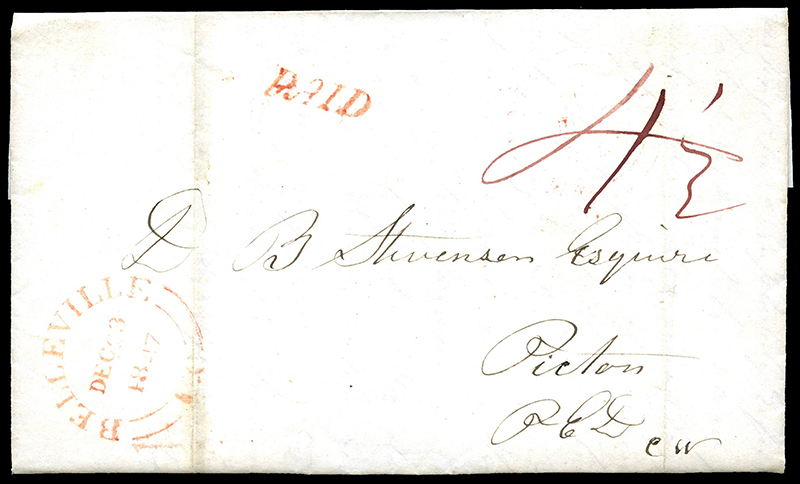 PAID
4 1/2
D B Stevenson Esquire
Picton
P E D
C W
BELLEVILLE
DEC 3
1847